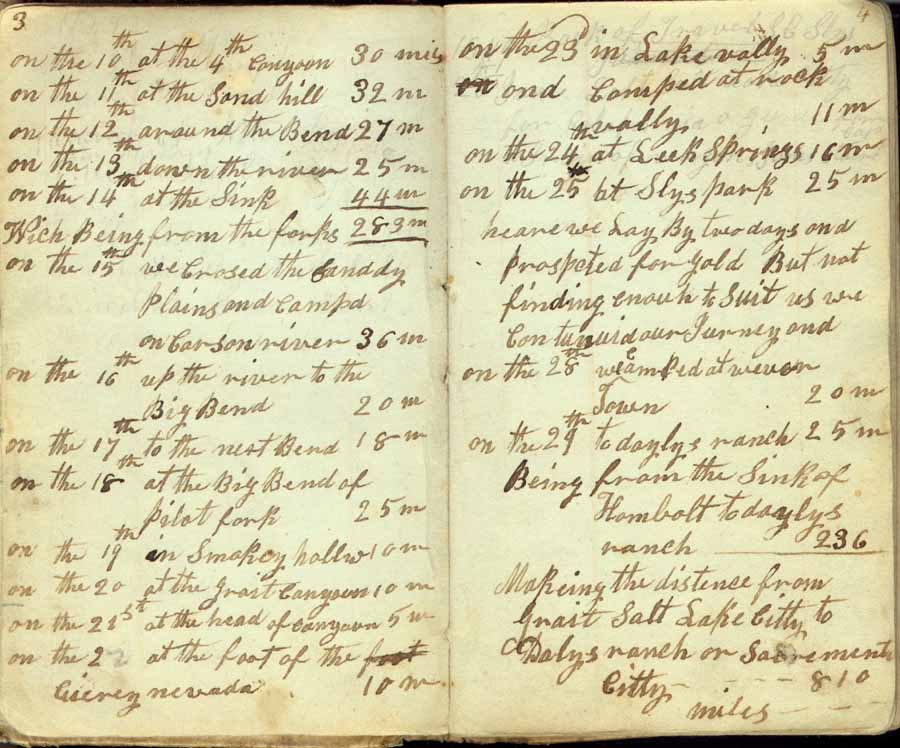 3
on the 10th at the 4th Canyoun 30 miles
on the 11th at the Sand hill 32 m
on the 12th around the Bend 27 m
on the 13th down the river 25 m
on the 14th at the Sink 44 m
Wich Being from the forks 283 m
on the 15th we Crosed the Sanddy
Plains and Campd
on Carson river 36 m
on the 16th up the river to the
Big Bend 20 m
on the 17th to the nest Bend 18 m
on the 18th at the Big Bend of
Pilot fork 25 m
on the 19th in Smokey hollw 10 m
on the 20 at the grait Canyoun 10 m
on the 21st at the head of Canyoun 5 m
on the 22 at the foot of the foot
Cierey nevada 10 m
4
on the 23d in Lake vally 5 m
on and Camped at rock
vally 11 m
on the 24th at Leek Springs 16 m
on the 25th at Slys park 25 m
heare we Lay By two days and
prospcted for gold But not
finding enouh to Suit us we
Contunuid our Jurney and
on the 28th we Camped at wever
Town 20 m
on the 29th to daylys ranch 25 m
Being from the Sink of
Hombolt to daylys
ranch 236
Makeing the distence from
Grait Salt Lake Citty to
Dalys ranch or Sacremento
Citty - - - - 810
miles - -